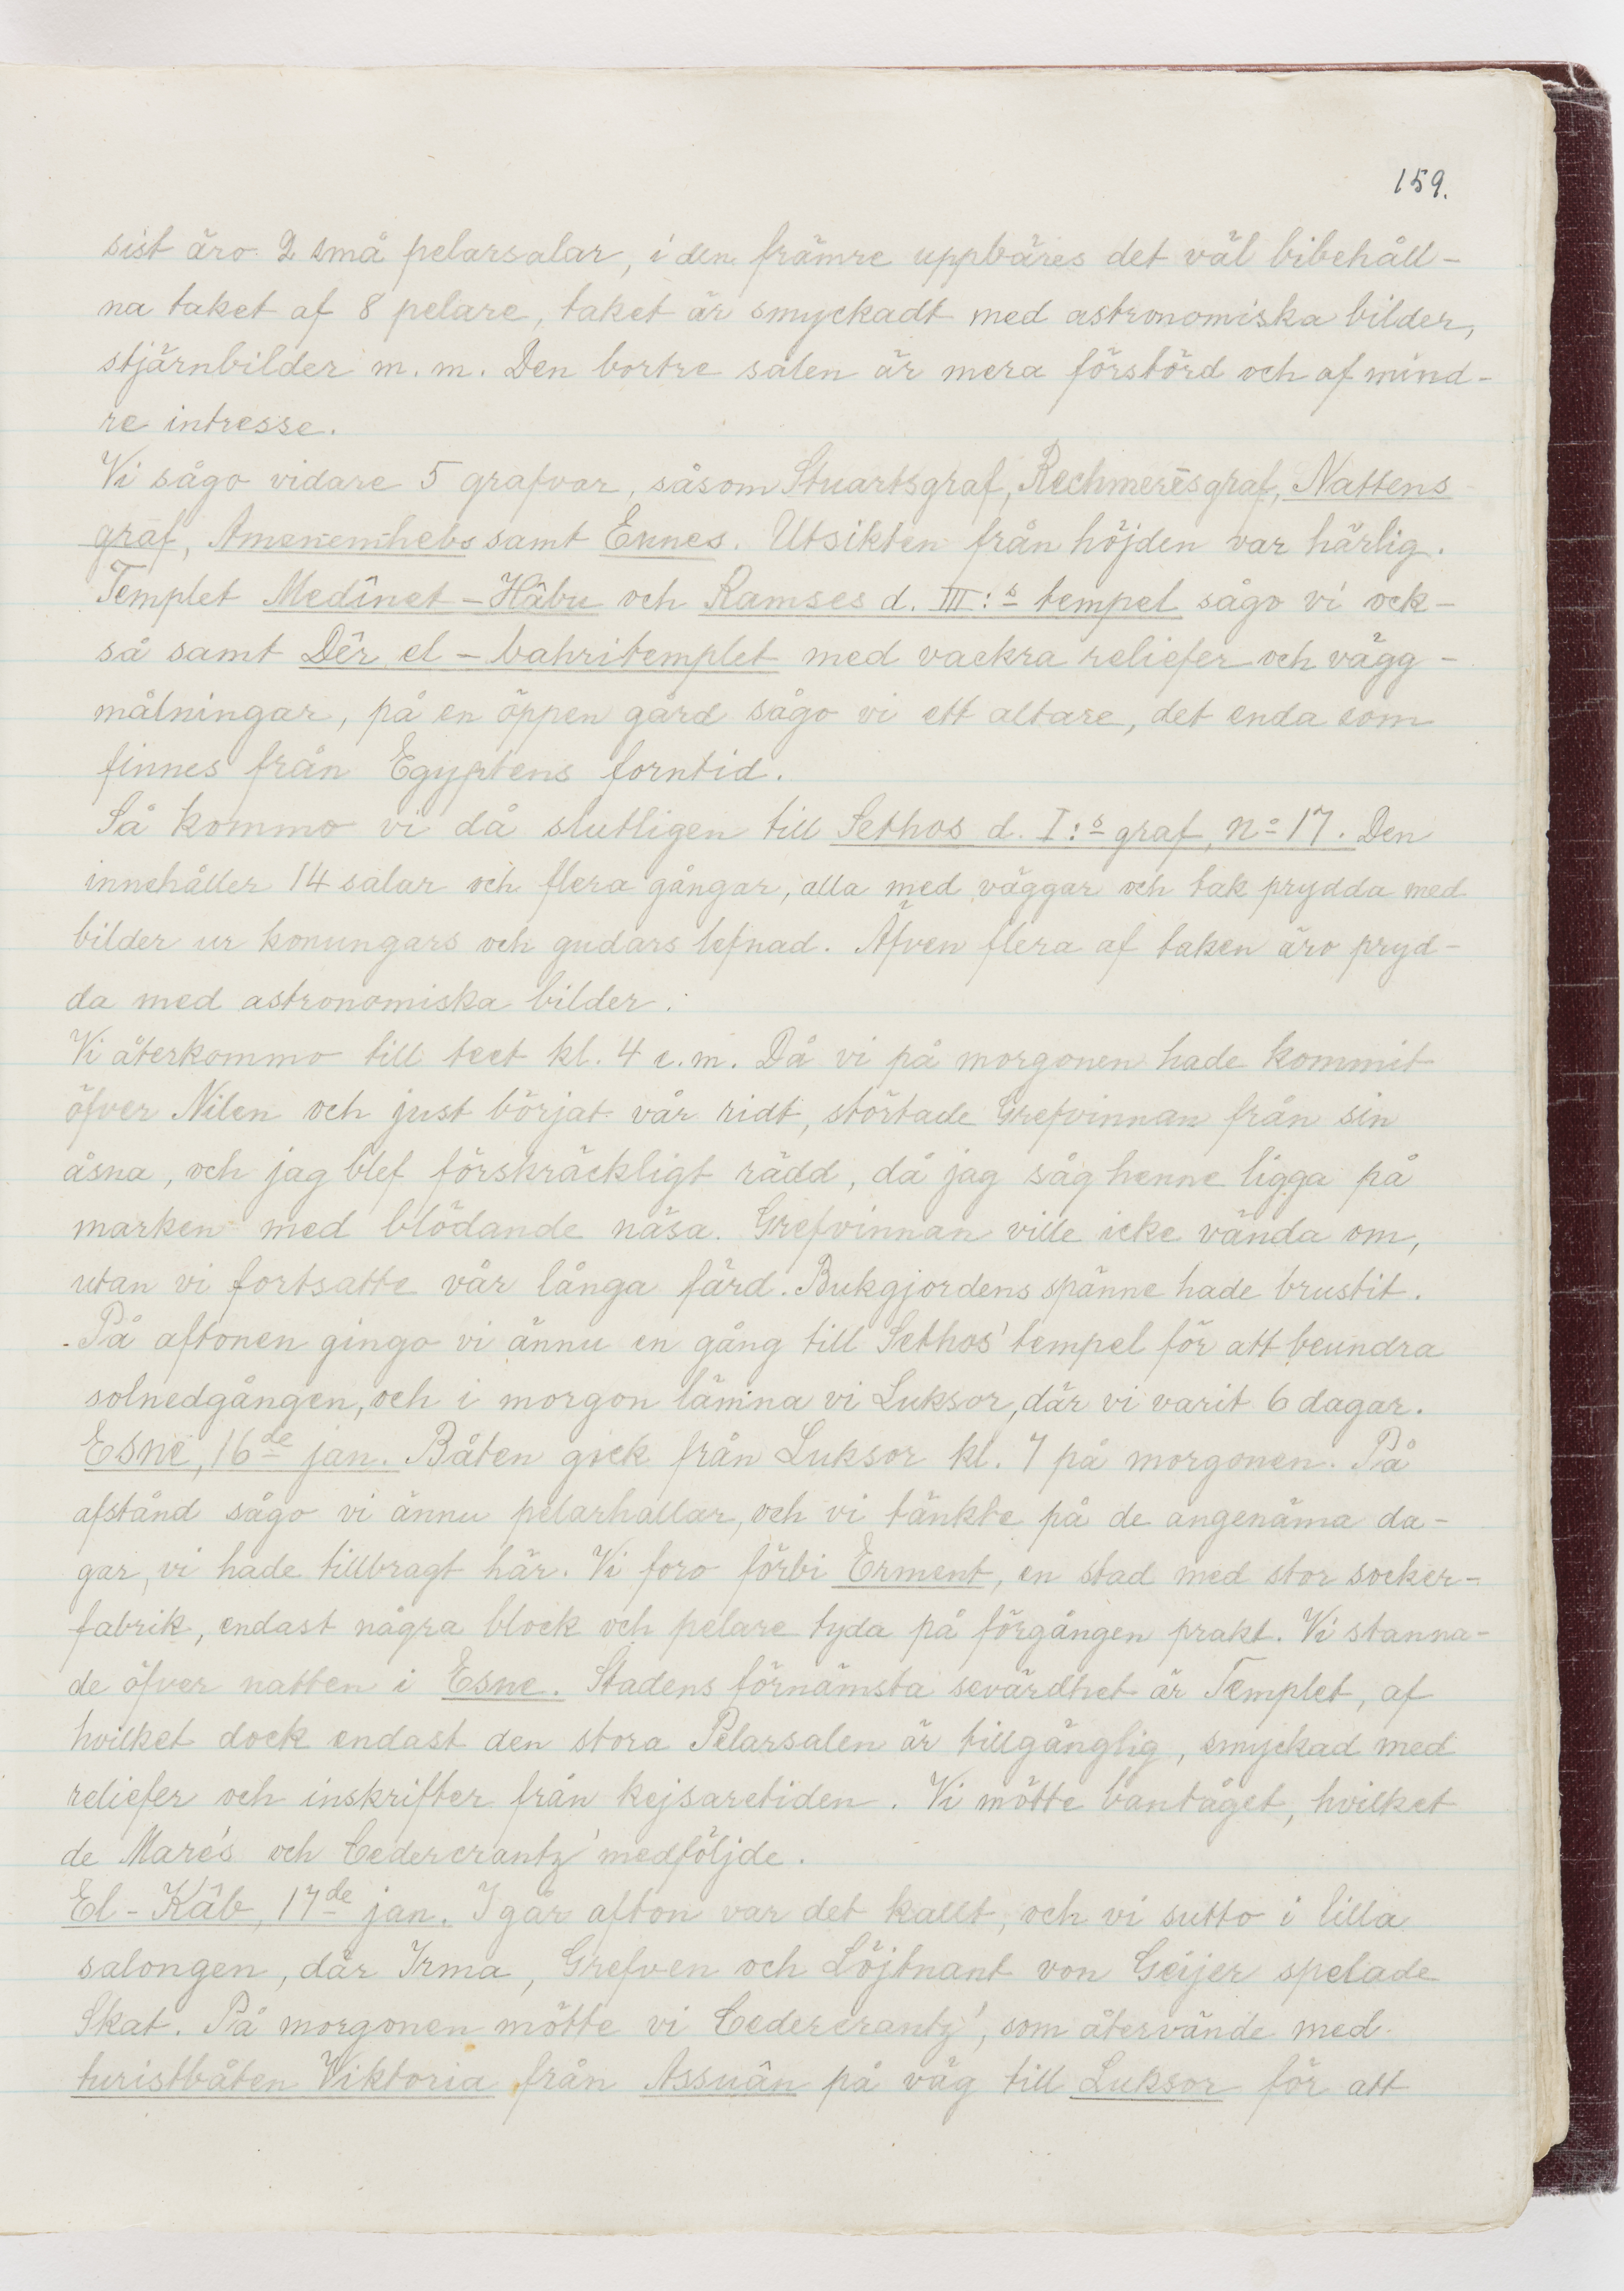 159.
sist äro 2 små pelarsalar, i den främre uppbäres det väl bibehåll-
na taket af 8 pelare, taket är smyckadt med astronomiska bilder,
stjärnbilder m. m. Den bortre salen är mera förstörd och af mind-
re intresse.
Vi sågo vidare 5 grafvar, såsom Stuartsgraf, Rechmerēsgraf, Nattens
graf, Amenemhebs samt Ennes. Utsikten från höjden var härlig.
Templet Medînet-Hâbu och Ramses d. III:s tempel sågo vi ock-
så samt Dêr el-bahritemplet med vackra reliefer och vägg-
målningar, på en öppen gård sågo vi ett altare, det enda som
finnes från Egyptens forntid.
Så kommo vi då slutligen till Sethos d. I:s graf, No 17. Den
innehåller 14 salar och flera gångar, alla med väggar och tak prydda med
bilder ur konungars och gudars lefnad. Äfven flera af taken äro pryd-
da med astronomiska bilder.
Vi återkommo till teet kl. 4 e.m. Då vi på morgonen hade kommit
öfver Nilen och just börjat vår ridt, störtade Grefvinnan från sin
åsna, och jag blef förskräckligt rädd, då jag såg henne ligga på
marken med blödande näsa. Grefvinnan ville icke vända om,
utan vi fortsatte vår långa färd. Bukgjordens spänne hade brustit.
På aftonen gingo vi ännu en gång till Sethos' tempel för att beundra
solnedgången, och i morgon lämna vi Luksor, där vi varit 6 dagar.
Esne, 16de jan. Båten gick från Luksor kl. 7 på morgonen. På
afstånd sågo vi ännu pelarhallar, och vi tänkte på de angenäma da-
gar, vi hade tillbragt här. Vi foro förbi Erment, en stad med stor socker-
fabrik, endast några block och pelare tyda på förgången prakt. Vi stanna-
de öfver natten i Esne. Stadens förnämsta sevärdhet är Templet, af
hvilket dock endast den stora Pelarsalen är tillgänglig, smyckad med
reliefer och inskrifter från kejsaretiden. Vi mötte bantåget, hvilket
de Maré's och Cedercrantz' medföljde.
El-Kâb, 17de jan. I går afton var det kallt, och vi sutto i lilla
salongen, där Irma, Grefven och Löjtnant von Geijer spelade
Skat. På morgonen mötte vi Cedercrantz', som återvände med
turistbåten Viktoria från Assuân på väg till Luksor för att